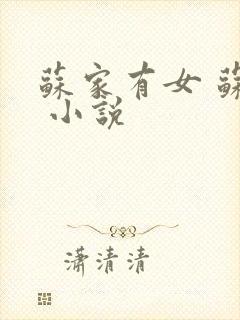 蘇家有女 蘇
小説
潇清清